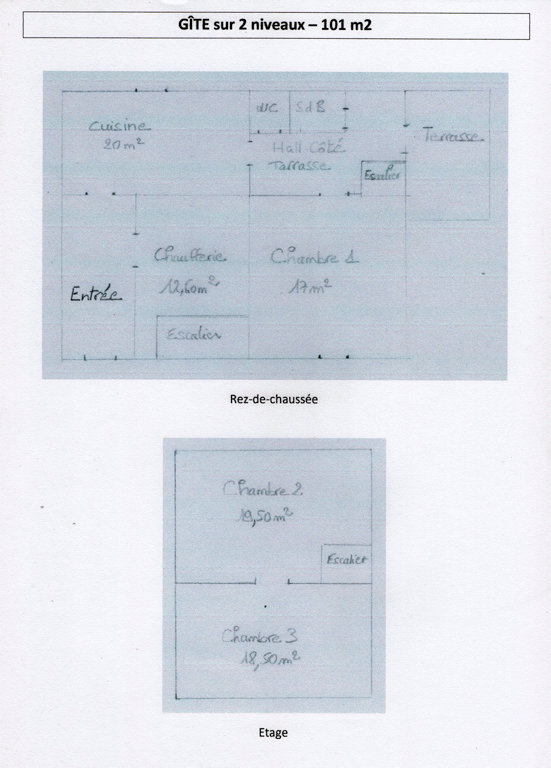 GÎTE sur 2 niveaux – 101 m2
Cuisine
20 m²
WC
SdB
Hall Côté
Tarrasse
Terrasse
Escalier
Entrée
Chaufferie
12,60 m²
Chambre 1
17 m²
Escalier
Rez-de-chaussée
Chambre 2
19,50 m²
Escalier
Chambre 3
18,50 m²
Etage